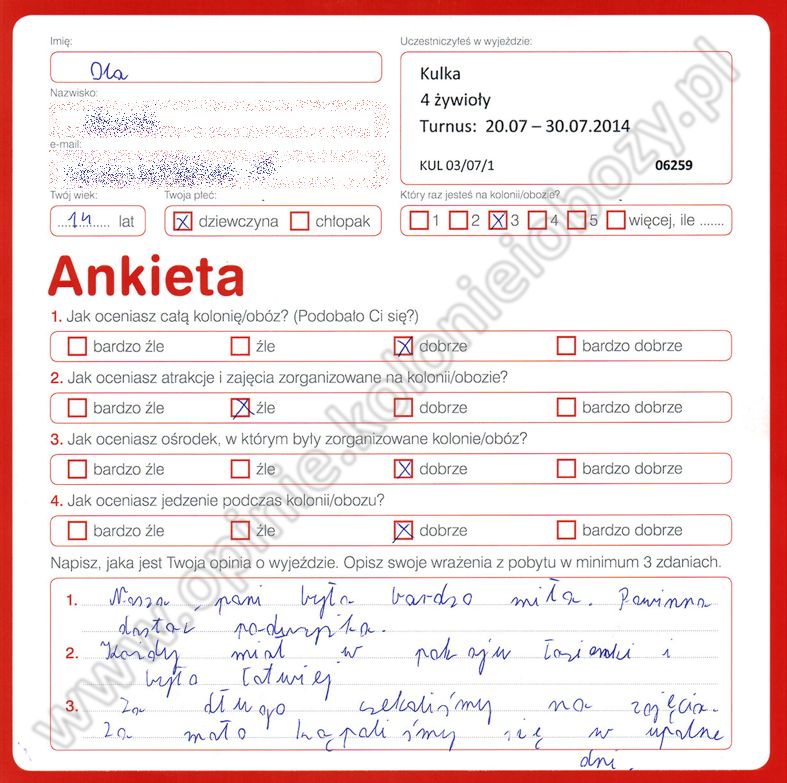 Imię:
Ola
Uczestniczyłeś w wyjeździe:
Kulka
4 żywioły
Turnus: 20.07 – 30.07.2014
KUL 03/07/1 06259
Nazwisko:
e-mail:
Twój wiek:
14 lat
Twoja płeć:
dziewczyna chłopak
Który raz jesteś na kolonii/obozie?
1 2 3 4 5 więcej, ile .......
Ankieta
1. Jak oceniasz całą kolonię/obóz? (Podobało Ci się?)
bardzo źle źle dobrze bardzo dobrze
2. Jak oceniasz atrakcje i zajęcia zorganizowane na kolonii/obozie?
bardzo źle źle dobrze bardzo dobrze
3. Jak oceniasz ośrodek, w którym były zorganizowane kolonie/obóz?
bardzo źle źle dobrze bardzo dobrze
4. Jak oceniasz jedzenie podczas kolonii/obozu?
bardzo źle źle dobrze bardzo dobrze
Napisz, jaka jest Twoja opinia o wyjeździe. Opisz swoje wrażenia z pobytu w minimum 3 zdaniach.
1. Nasza pani była bardzo miła. Powinna
dostać podwyżka.
2. Każdy miał w pokoju łazienki i
było łatwiej
3. Za długo czekaliśmy na zajęcia.
Za mało kąpaliśmy się w upalne
dni.
www.opinie.kolonieiobozy.pl